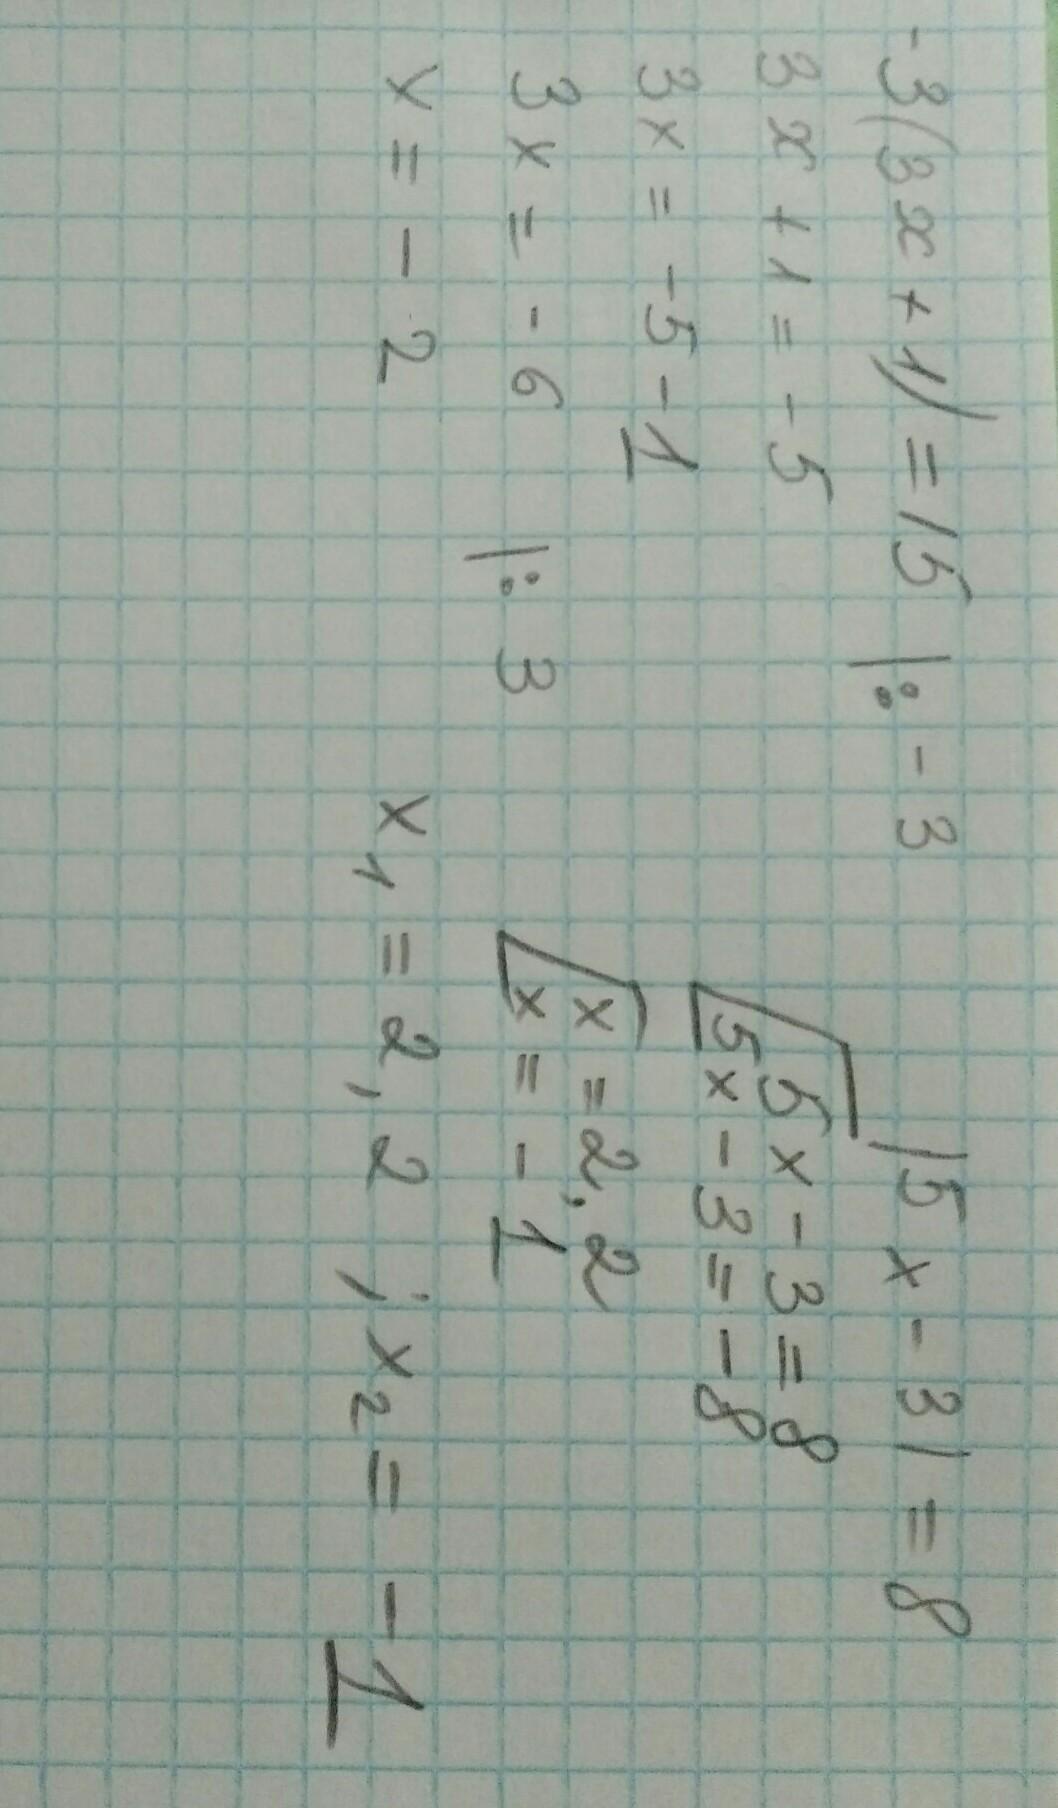 -3(3x+1)=15 |: -3
3x+1=-5
3x=-5-1
3x=-6 |: 3
x=-2
|5x-3|=8
5x-3=8
5x-3=-8
x=2,2
x=-1
x₁=2,2 ; x₂=-1